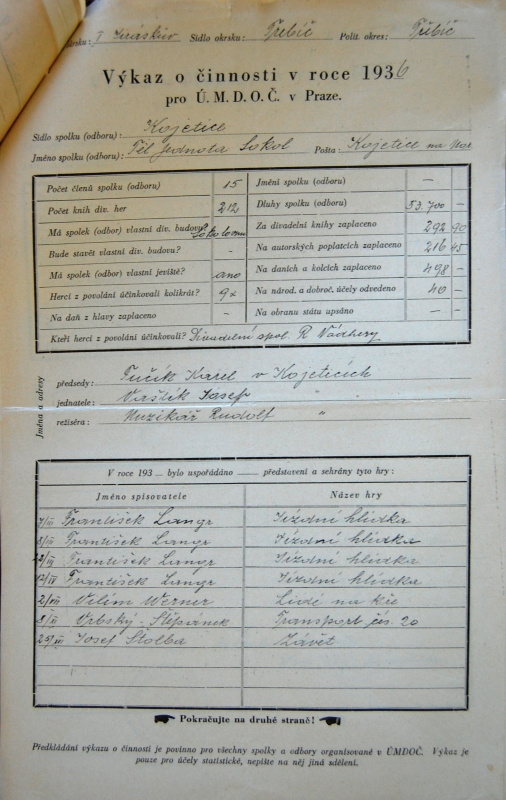 okrsku: J. Sidlo okrsku: Třebíč Polit. okres: Třebíč
Výkaz o činnosti v roce 1936
pro Ú. M. D. O. Č. v Praze.
Sídlo spolku (odboru): Kojetice
Jméno spolku (odboru): Těl. Jednota Sokol Pošta: Kojetice na Mor
Počet členů spolku (odboru) 15 Jmění spolku (odboru) —
Počet knih div. her 212 Dluhy spolku (odboru) 53.700 —
Má spolek (odbor) vlastní div. budovu? Sokolovnu Za divadelní knihy zaplaceno 292 90
Bude stavět vlastní div. budovu? — Na autorských poplatcích zaplaceno 216 45
Má spolek (odbor) vlastní jeviště? ano Na daních a kolcích zaplaceno 498 —
Herci z povolání účinkovali kolikrát? 9x Na národ. a dobroč. účely odvedeno 40 —
Na daň z hlavy zaplaceno — Na obranu státu upsáno —
Kteří herci z povolání účinkovali? Divadelní spol. R Vádhery
Jména a adresy
předsedy: Tučík Karel v Kojeticích
jednatele: Vašlík Josef „
režiséra: Muzikář Rudolf „
V roce 193 bylo uspořádáno představení a sehrány tyto hry:
Jméno spisovatele Název hry
7/III František Langr Jízdní hlídka
8/III František Langr Jízdní hlídka
František Langr Jízdní hlídka
12/IV František Langr Jízdní hlídka
Vilím Werner Lidé na kře
Vrbský - Štěpánek Transport čís. 20
Josef Štolba Závět
Pokračujte na druhé straně!
Předkládání výkazu o činnosti je povinno pro všechny spolky a odbory organisované v ÚMDOČ. Výkaz je
pouze pro účely statistické, nepište na něj jiná sdělení.